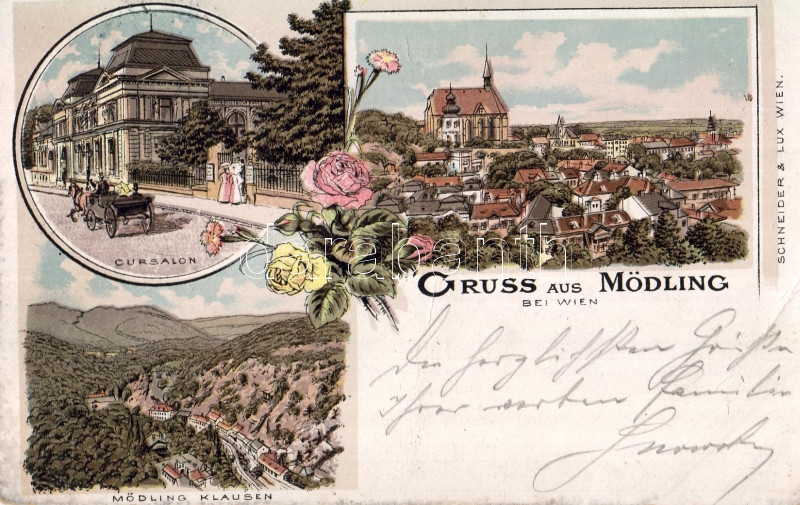 CURSALON
GRUSS AUS MÖDLING
BEI WIEN
MÖDLING KLAUSEN
SCHNEIDER & LUX WIEN.
darabanth
Die herzlichsten Grüße
Ihrer werten Familie